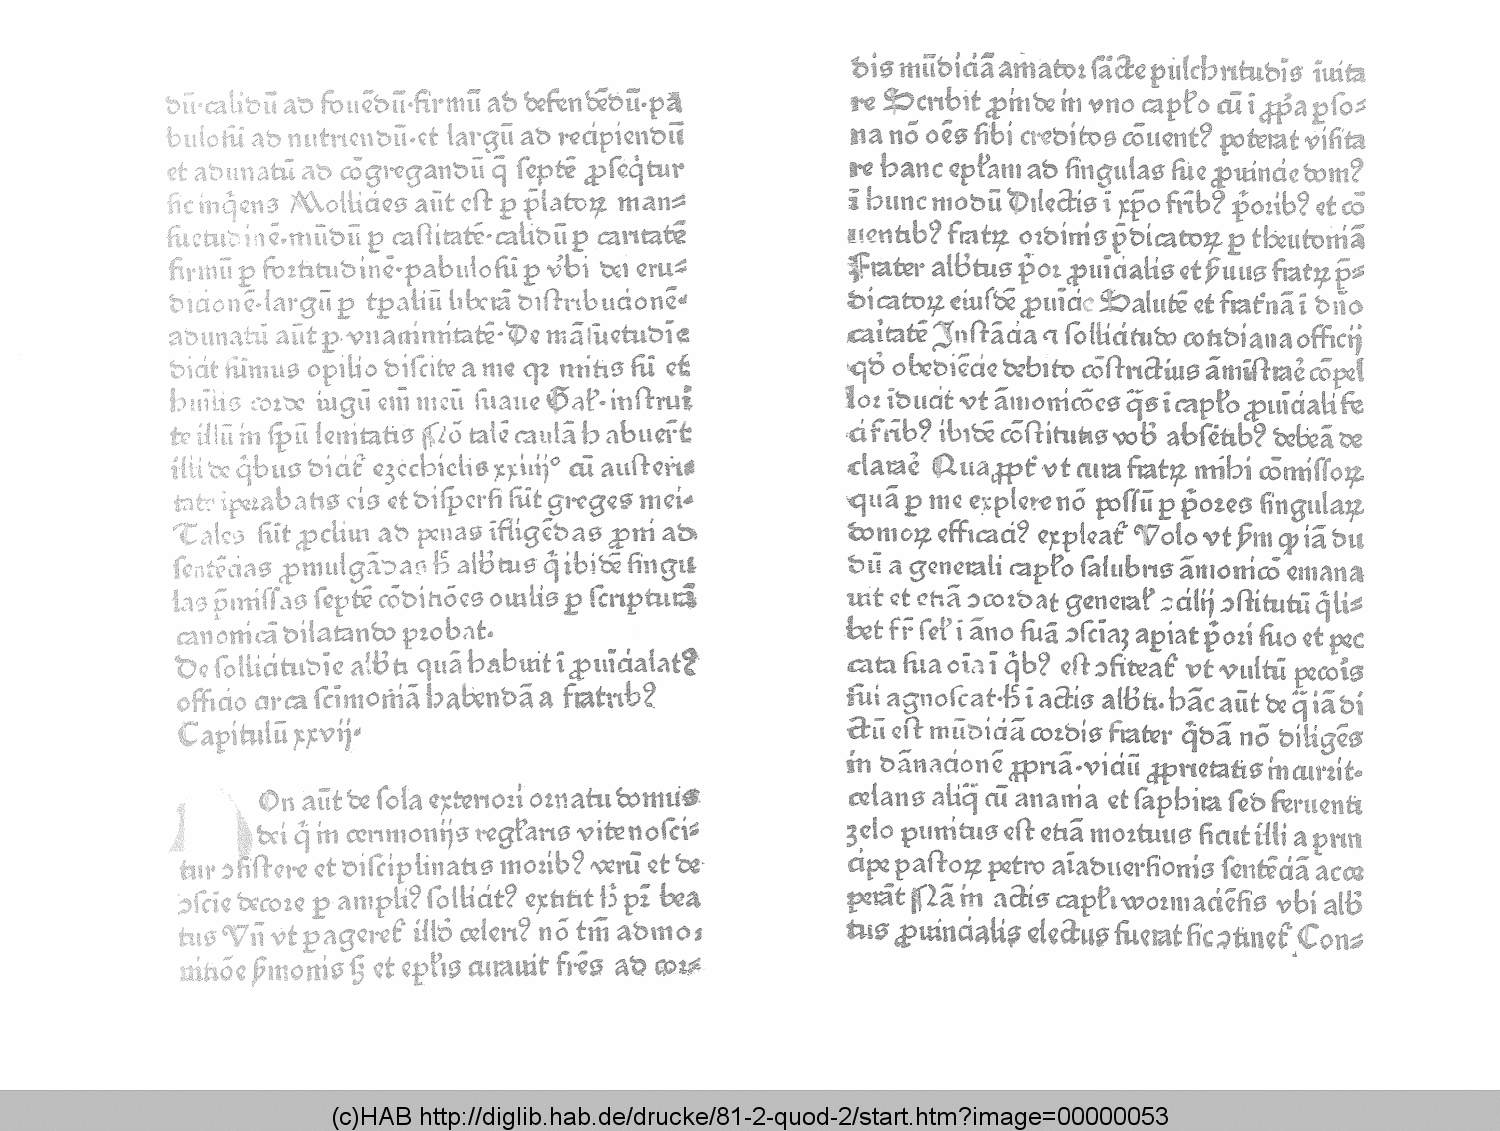 dū·calidū ad fouēdū·firmū ad defendēdū·pa
bulosū ad nutriendū·et largū ad recipiendū
et adunatū ad cōgregandū q̄ septē ꝓseq̇tur
sic inq̇ens Mollicies aūt est p p̄latoꝝ man⸗
suetudinē·mūdū p castitatē·calidū p caritatē
firmū p fortitudinē·pabulosū p v̓bi dei eru⸗
dicionē·largū p tpaliū liberā distribucionē·
adunatū aūt p vnanimitatē·De māsuetudīe
dicit sūmus opilio discite a me qꝛ mitis sū et
humilis corde iugū em̄ meū suaue Gal̓·instrui
te illū in sp̄u lenitatis Nō talē caulā habuer̄t
illi de q̇bus dicit᷑ ezechielis xxiiij° cū auste​ris
tate īperabatis eis et dispersi sūt greges mei·
Tales sūt ꝓcliui ad penas īfligēdas ꝓni ad
sentēcias ꝓmulgādas h̄ alb̓tus q̇ ibidē singu
las p̄missas septē cōdiciōes ouilis p scripturā
canonicā dilatando probat·
De sollicitudīe alb̓ti quā habuit ī ꝓuīcialatꝰ
officio circa scīmoniā habendā a fratribꝰ
Capitulū xxvij·
On aūt de sola exteriori ornatu domus
dei q̇ in cerimonijs regl̓aris vite nosci⸗
tur ↄsistere et disciplinatis moribꝰ verū et de
ↄscīe decore p ampliꝰ sollicitꝰ extitit h̓ pꝛ̄ bea
tus Vn̄ vt pageret᷑ illd̓ celeriꝰ nō tm̄ admo
nitiōe s̓monis sꝫ et ep̓lis curauit fr̄es ad cor⸗
dis mūdiciā amator sācte pulchritudīs īuita
re Scribit ꝓinde in vno capl̓o cū ī ꝓp̄a pso⸗
na nō oēs sibi creditos cōuentꝰ poterat visita
re hanc epl̓am ad singulas sue ꝓuincie domꝰ
ī hunc modū Dilectis ī xp̄o fr̄ibꝰ p̓oribꝰ et cō
uentibꝰ fratꝝ ordinis p̄dicatoꝝ p theutoniā
Frater alb̓tus p̓or ꝓuīcialis et s̓uus fratꝝ p̄⸗
dicatoꝝ eiusdē ꝓuīcie Salutē et frat̓nā ī dn̄o
caritatē Instācia a sollicitudo cotidiana officij
qd̓ obediēcie debito cōstrictius āmīstrare̓ cōpel
lor īducit vt āmonicōes q̄s ī capl̓o ꝓuīciali fe
ci fr̄ibꝰ ibidē cōstitutis vob̓ absētibꝰ debeā de
clarare̓ Quaꝓpt᷑ vt cura fratꝝ mihi cōmissoꝝ
quā p me explere nō possū p p̓ores singulaꝝ
domoꝝ efficaciꝰ expleat᷑ Volo vt s̓m ꝙ iā du
dū a generali capl̓o salubris āmonicō emana
uit et etiā ↄcordat general̓ ↄcilij ↄstitutū q̇li⸗
bet fr̄ sel̓ ī āno suā ↄsciāꝫ apiat p̓ori suo et pec
cata sua oīa ī q̇bꝰ est ↄfiteat᷑ vt vultū pecoīs
sui agnoscat·h̓ ī actis alb̓ti·hāc aūt de q̄ iā di
ctū est mūdiciā cordis frater q̇dā nō diligēs
in dānacionē ꝓpriā·viciū ꝓprietatis incurrit·
celans aliq̄ cū anania et saphira sed feruenti
zelo punitus est etiā mortuus sicut illi a prin
cipe pastoꝝ petro aīaduersionis sentēciā acce
perāt Nā in actis capl̓i wormaciēsis vbi alb̓
tus ꝓuincialis electus fuerat sic ↄtinet᷑ Con⸗
(c)HAB http://diglib.hab.de/drucke/81-2-quod-2/start.htm?image=00000053